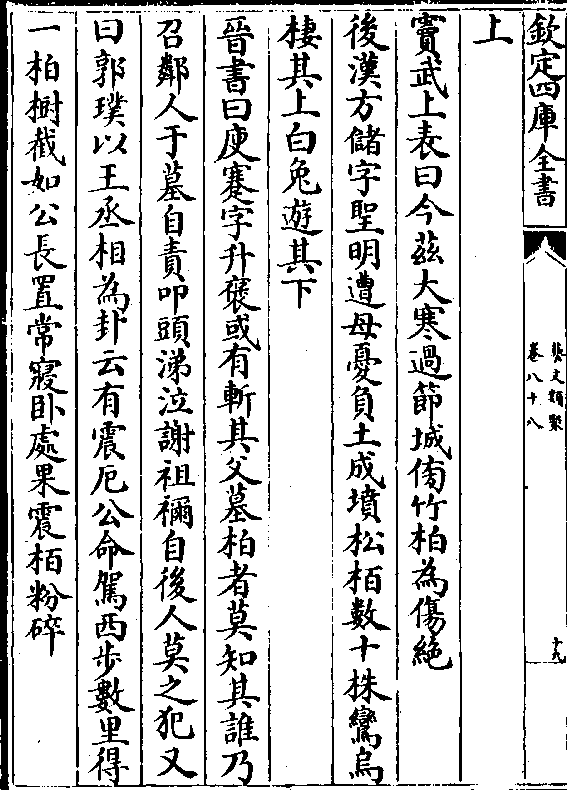 欽定四庫全書
藝文類聚
卷八十八
十九
上
竇武上表曰今茲大寒過節城傍竹柏為傷絶
後漢方儲字聖明遭母憂負土成墳松柏數十株鸞鳥
棲其上白兔遊其下
晉書曰庾蹇字升褒或有斬其父墓柏者莫知其誰乃
召鄰人于墓自責叩頭涕泣謝祖禰自後人莫之犯又
曰郭璞以王丞相為卦云有震厄公命駕西步數里得
一柏樹截如公長置常寢卧處果震栢粉碎